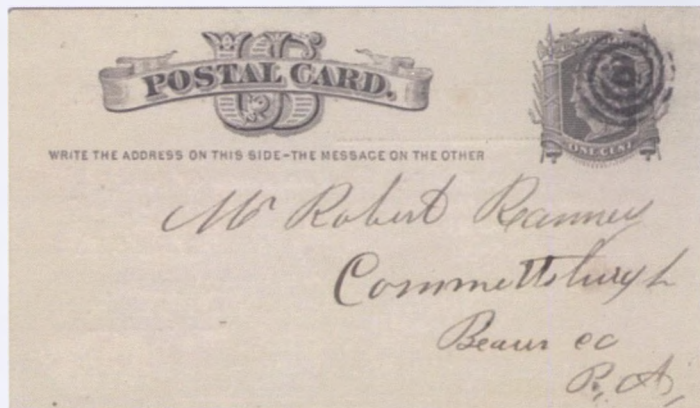 US
POSTAL CARD.
ONE CENT
WRITE THE ADDRESS ON THIS SIDE–THE MESSAGE ON THE OTHER
Mr Robert
Commettsburgh
Beaver co
Pa,